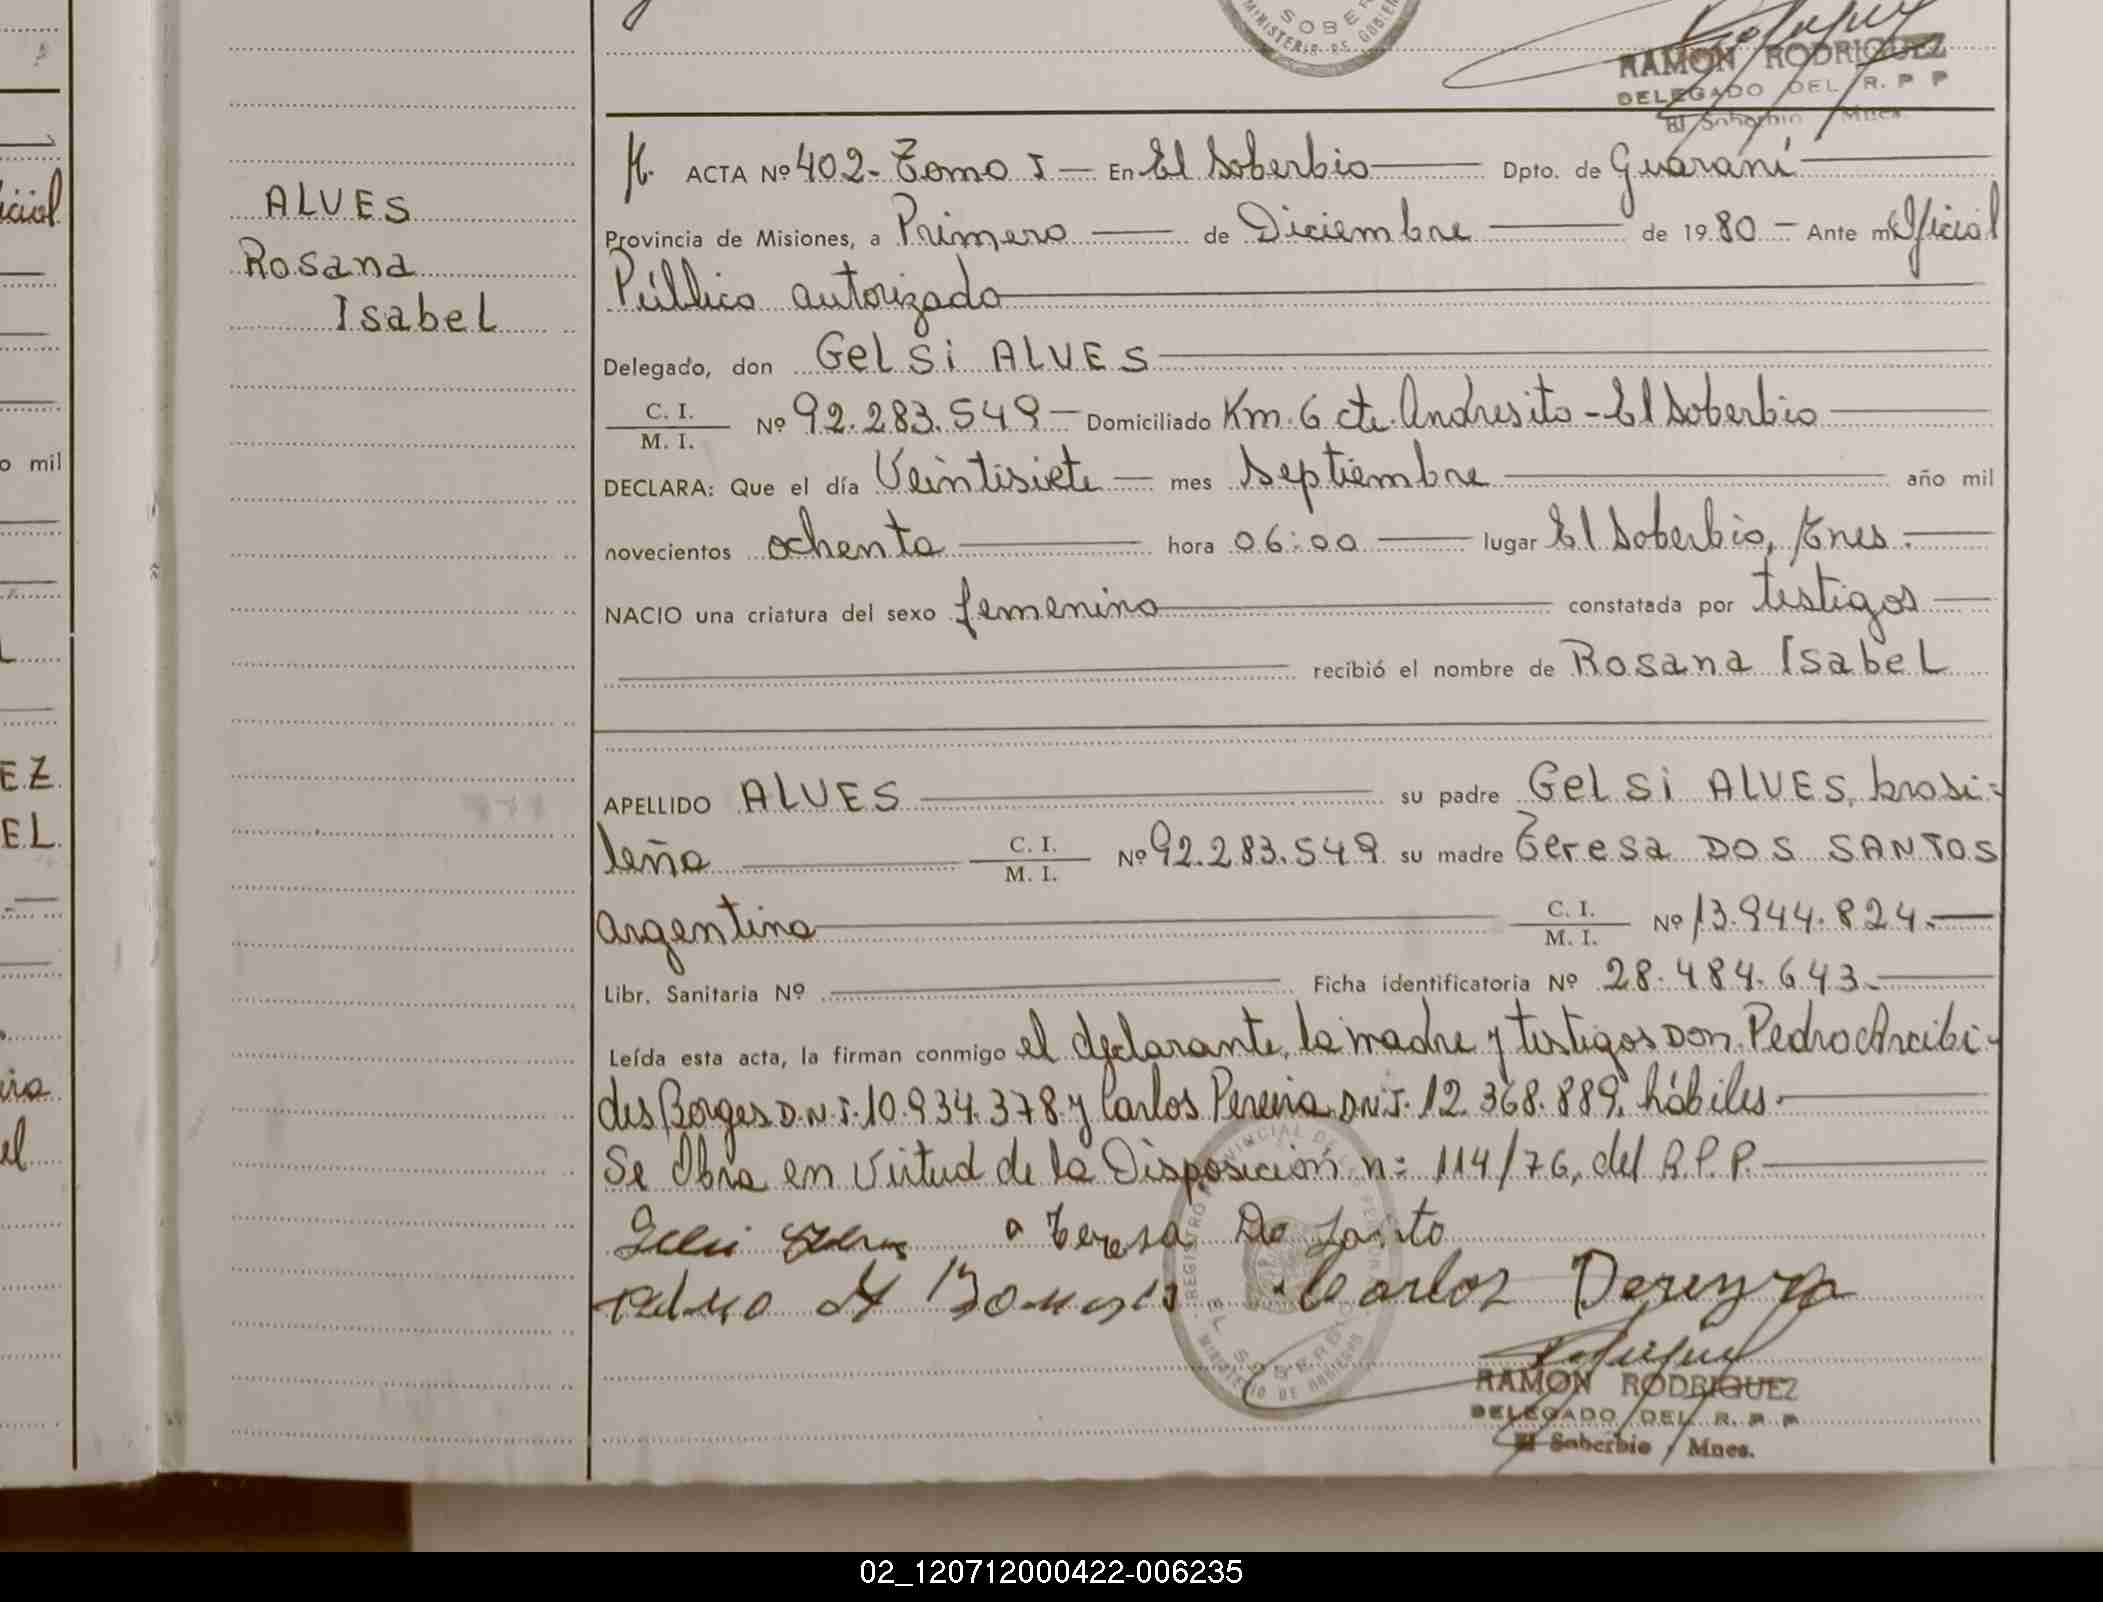 SOBER
MINISTERIO DE GOBIER
RAMON RODRIGUEZ
DELEGADO DEL R. P P
El Soberbio Mnes.
ALVES
Rosana
Isabel
icial
o mil
EZ
EL
el
ACTA Nº 402- Tomo I — En El Soberbio Dpto. de Guaraní
Provincia de Misiones, a Primero de Diciembre de 1980 - Ante mí Oficial
Público autorizado
Delegado, don Gelsi ALVES
C. I.
M. I. Nº 92.283.549 - Domiciliado Km. 6 cte. Andresito - El Soberbio
DECLARA: Que el día Veintisiete mes Septiembre año mil
novecientos ochenta hora 06:00 lugar El Soberbio, Mnes.
NACIO una criatura del sexo femenino constatada por testigos
recibió el nombre de Rosana Isabel
APELLIDO ALVES su padre Gelsi ALVES, brasi-
leña C. I. M. I. Nº 92.283.549 su madre Teresa DOS SANTOS
argentina C. I. M. I. Nº 13.944.824.
Libr. Sanitaria Nº Ficha identificatoria Nº 28.484.643.
Leída esta acta, la firman conmigo el declarante, la madre y testigos Don Pedro Arcibi-
des Borges D.N.I. 10.934.378 y Carlos Pereira D.N.I. 12.368.889, hábiles.
Se Obra en virtud de la Disposición nº 114/76, del R.P.P.
a Teresa Do Santo
Carlos
REGISTRO PROVINCIAL DE
EL SOBERBIO
MINISTERIO DE GOBIERNO
RAMON RODRIGUEZ
DELEGADO DEL R. P P
El Soberbio Mnes.
02_120712000422-006235